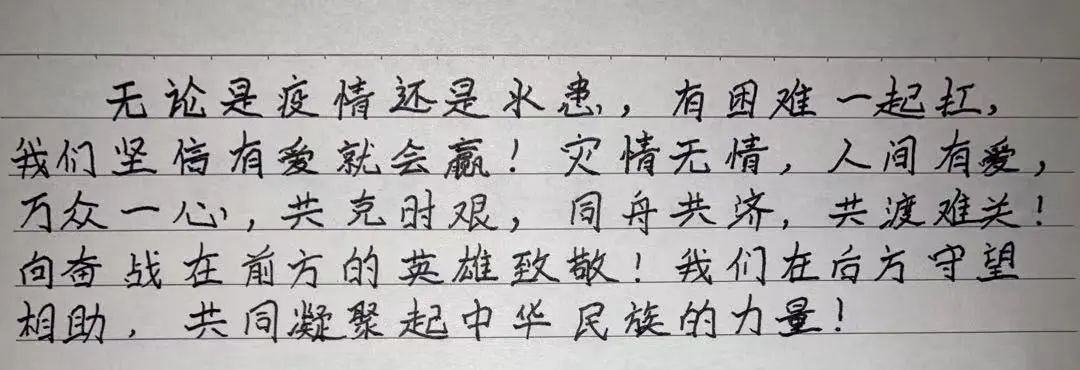 无论是疫情还是水患，有困难一起扛，
我们坚信有爱就会赢！灾情无情，人间有爱，
万众一心，共克时艰，同舟共济，共渡难关！
向奋战在前方的英雄致敬！我们在后方守望
相助，共同凝聚起中华民族的力量！